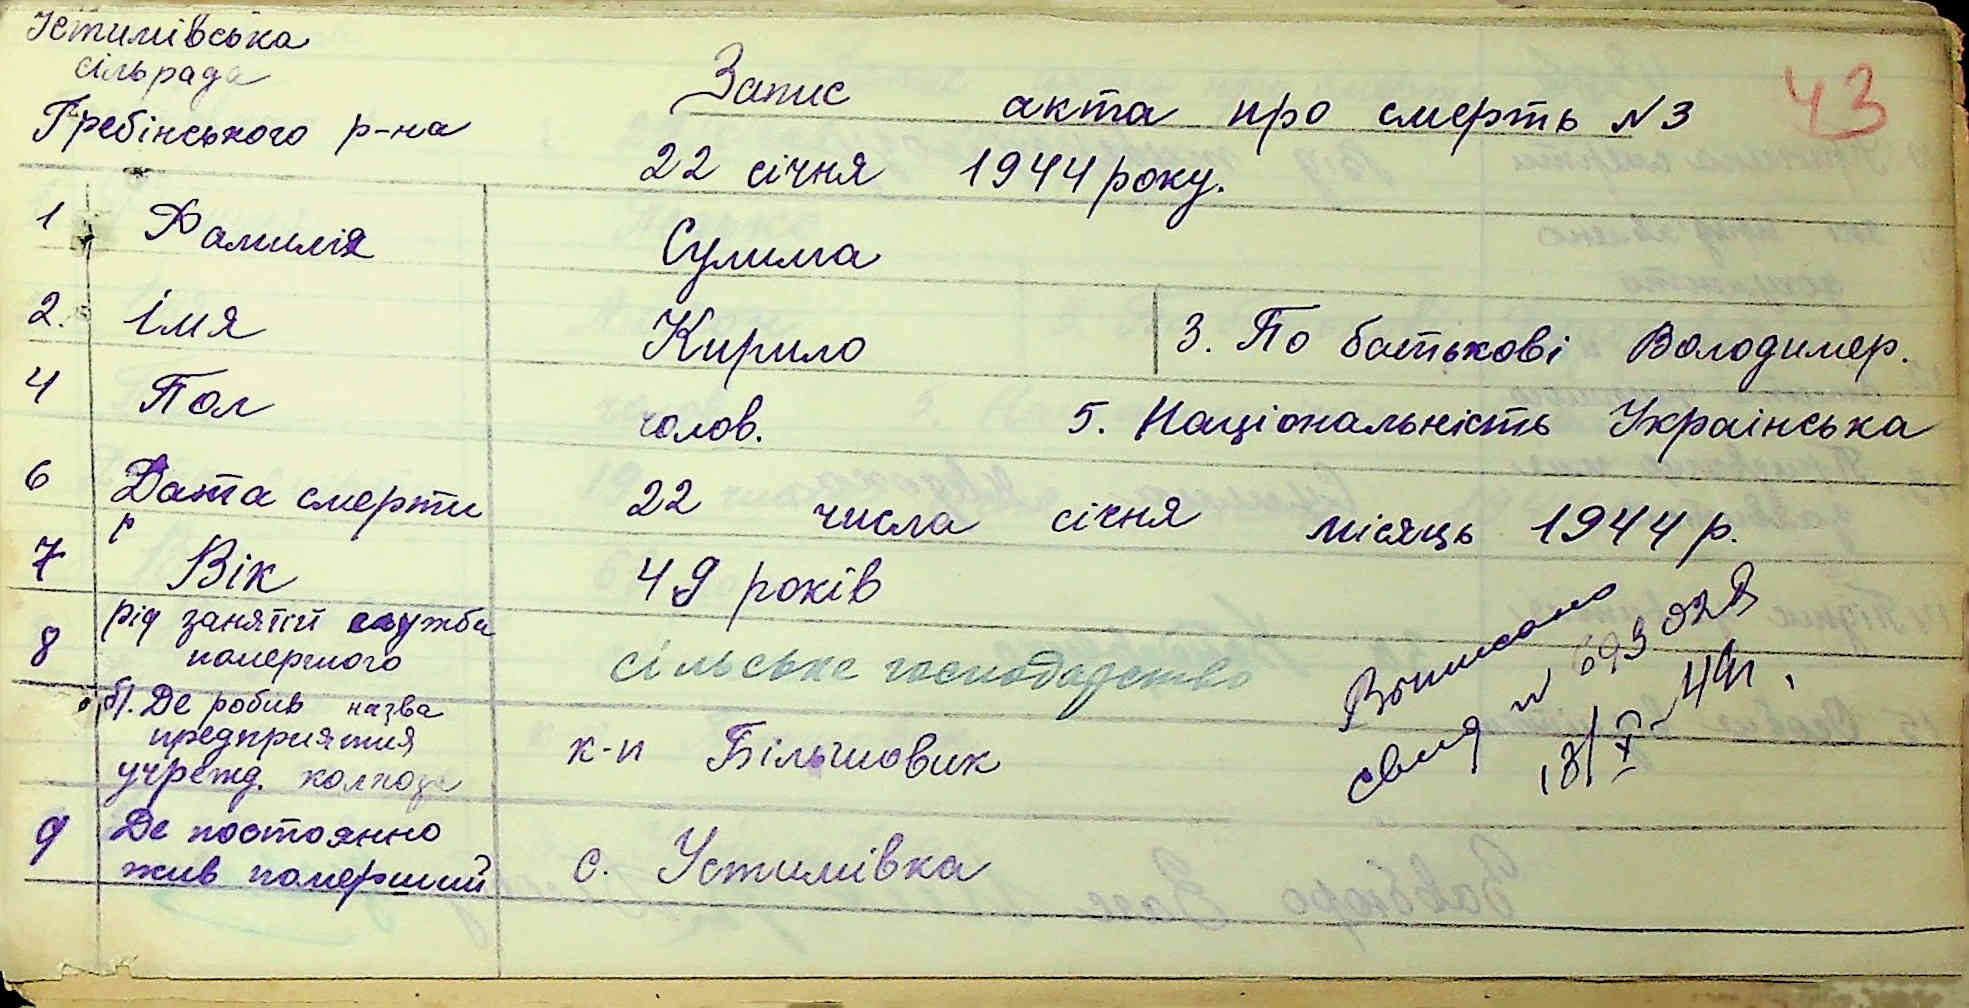 Устимівська
сільрада
Гребінського р-на
43
Запис акта про смерть N 3
22 січня 1944 року.
1 Фамилія Сулима
2. Імя Кирило 3. По батькові Володимер.
4 Пол чолов. 5. Національність Українська
6 Дата смерти 22 числа січня місяць 1944 р.
7 Вік 49 років
8 рід заняття служби
помершого сільське господарство
б). Де робив назва
предприятия
учрежд. колхоза к-п Більшовик
9 Де постоянно
жив померший с. Устимівка
Выписано
свид N